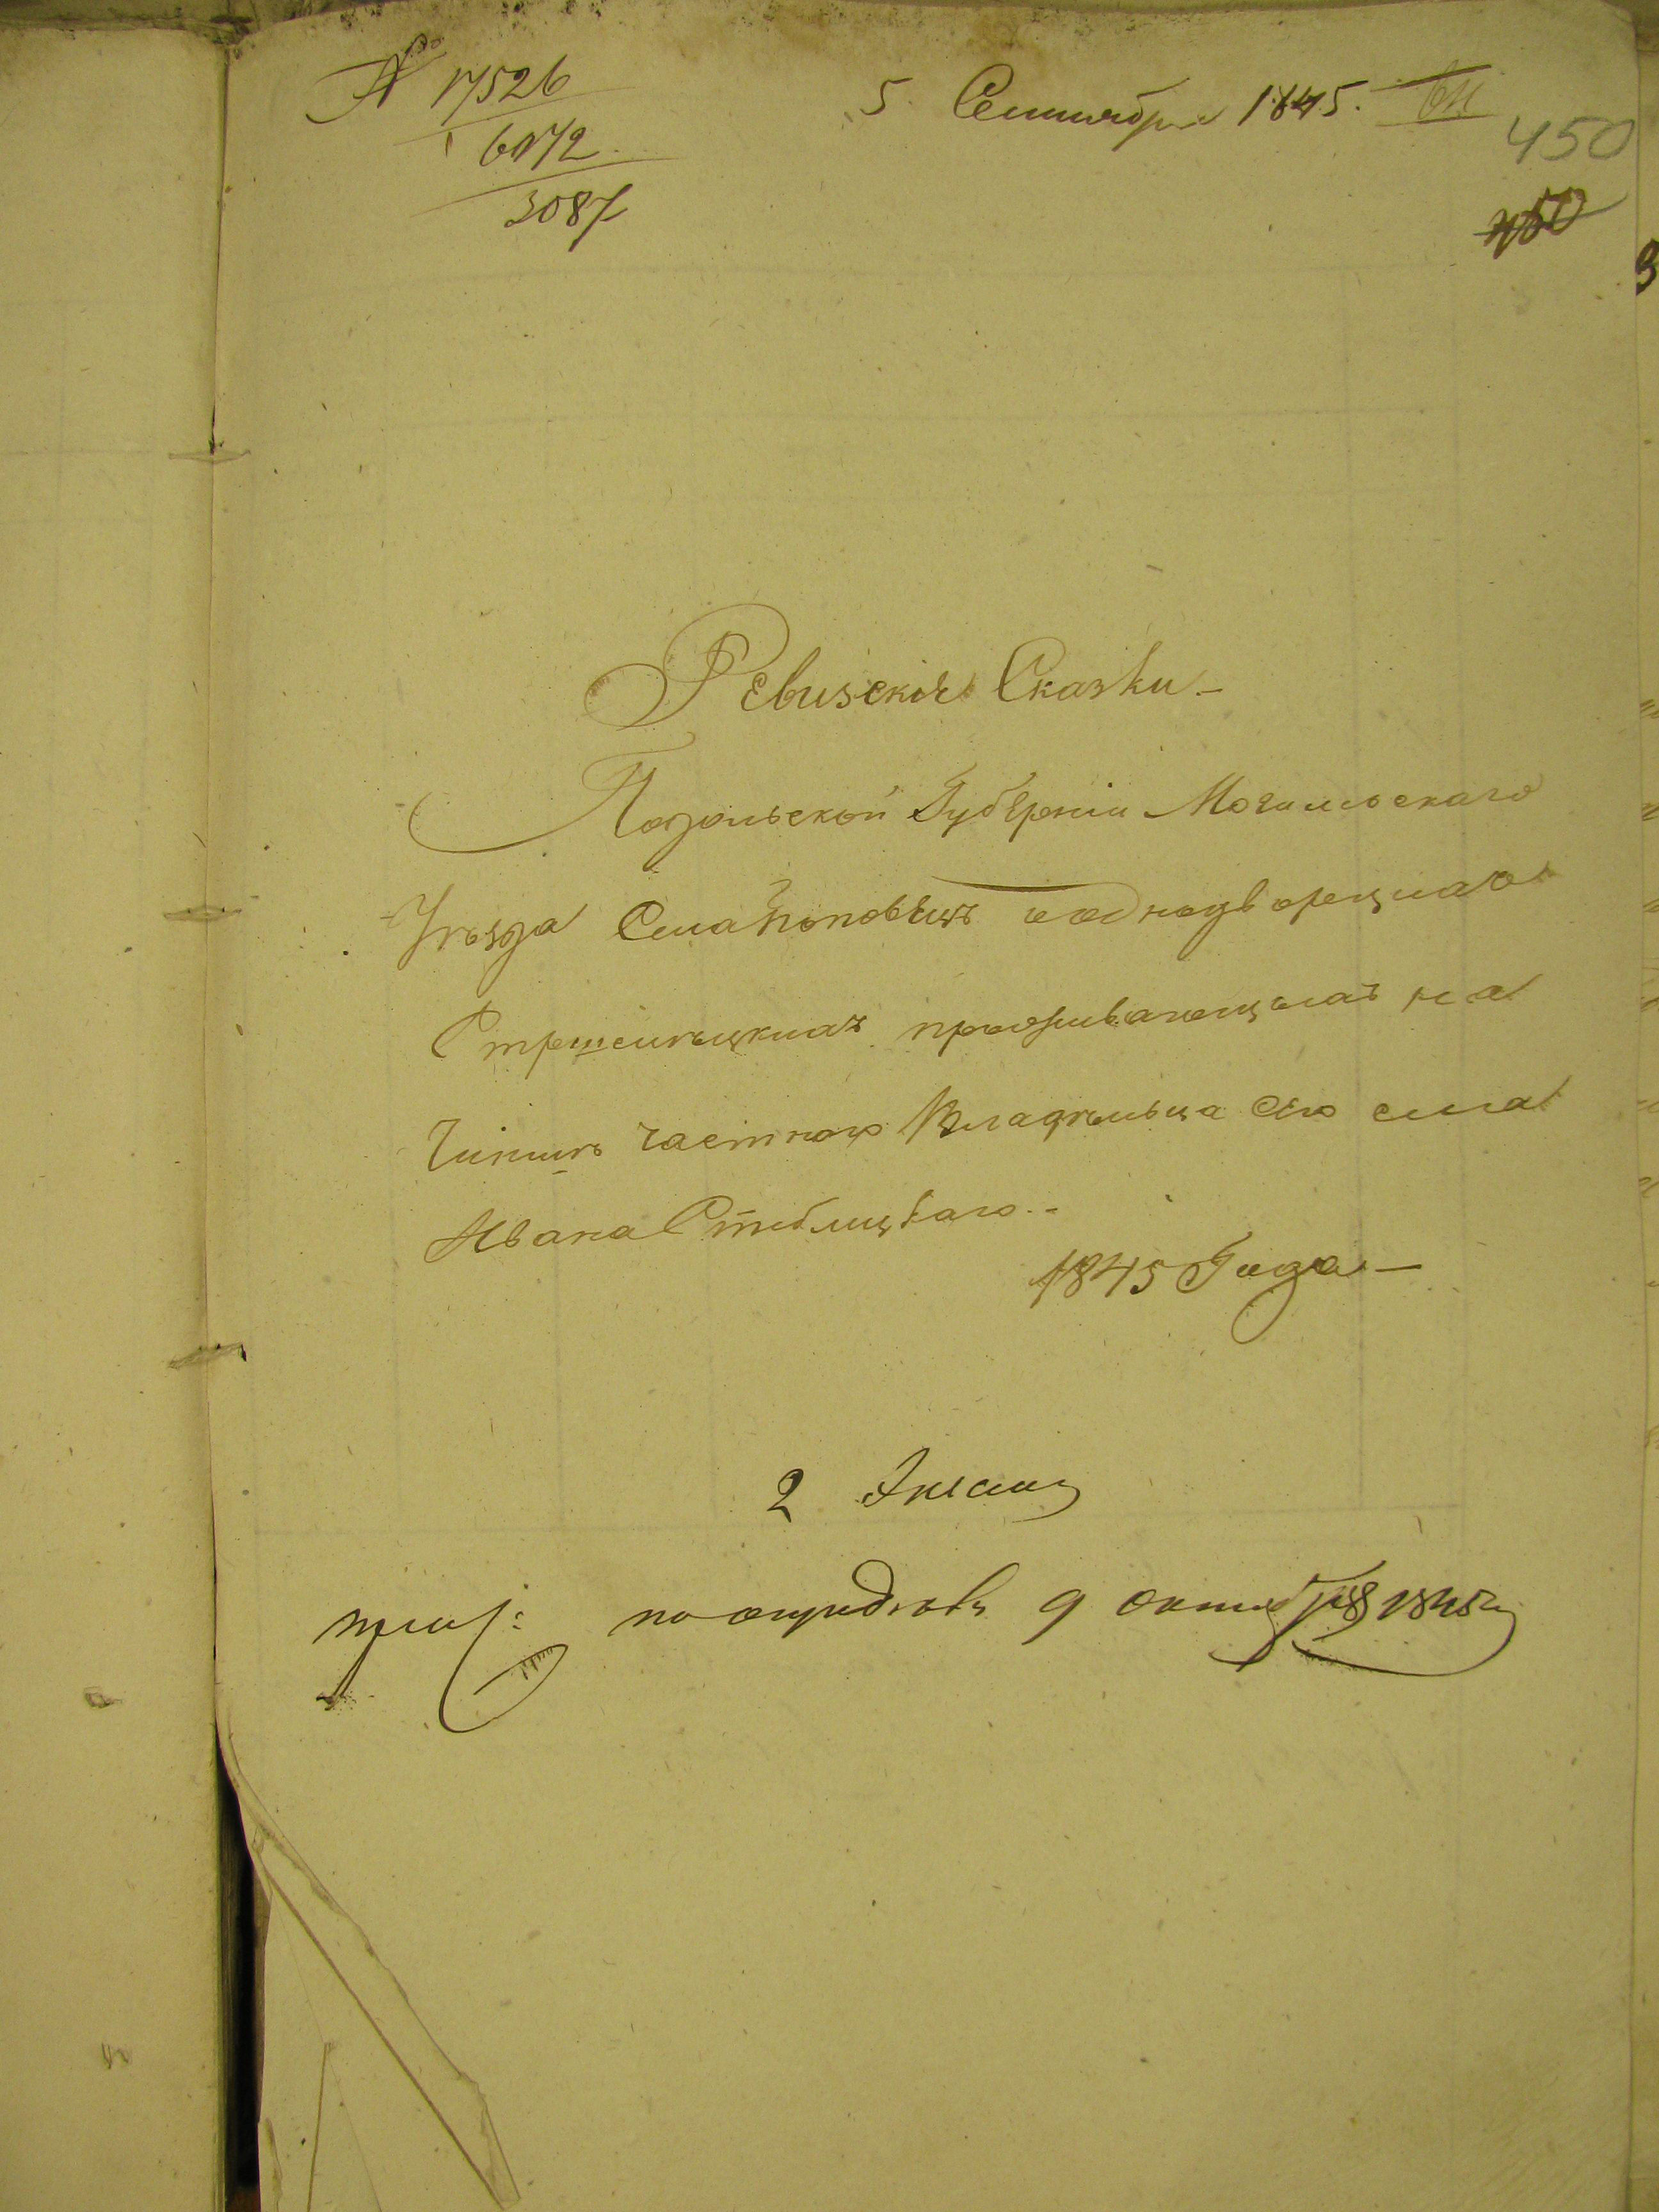 № 17526
6172
3087
5 Сентября 1845.
450
450
Ревизскія Сказки
Подольской Губерніи Могилевскаго
Уѣзда Села Поповецъ однодворцахъ
проживающихъ на
Чиншѣ частного Владѣльца сего села
Ивана Стеблицкаго
1845 Года
2 Экземп
по 9 октября 1845 г